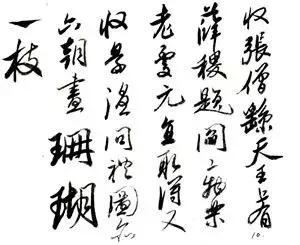 收張僧繇天王上有
薛稷題閻二物樂
老處元直取得又
收景溫問禮圖亦
六朝畫珊瑚
一枝